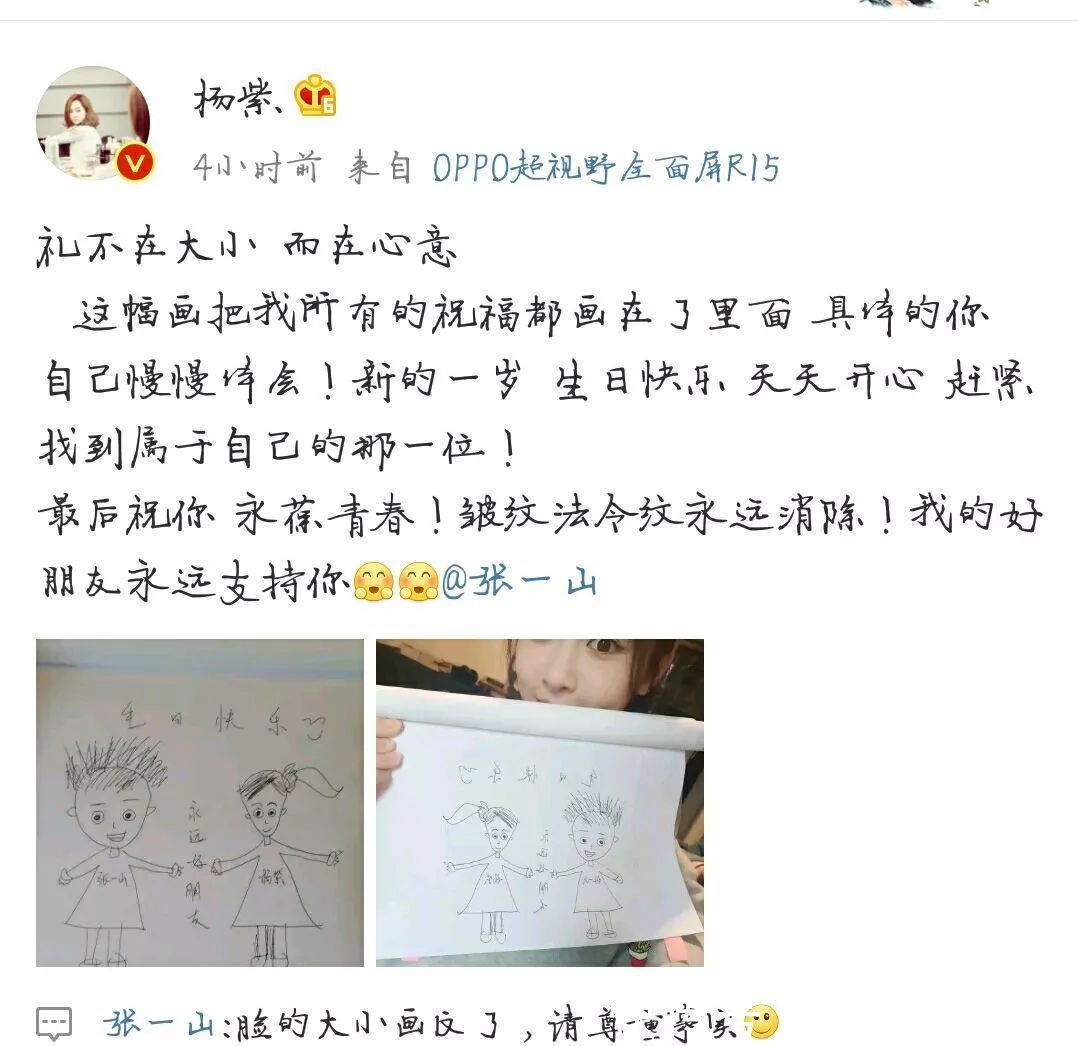 杨紫、
4小时前 来自 OPPO超视野全面屏R15
礼不在大小 而在心意
这幅画把我所有的祝福都画在了里面 具体的你
自己慢慢体会！新的一岁 生日快乐 天天开心 赶紧
找到属于自己的那一位！
最后祝你 永葆青春！皱纹法令纹永远消除！我的好
朋友永远支持你@张一山
生日快乐
永远好朋友
张一山
杨紫
生日快乐
永远好朋友
张一山:脸的大小画反了，请尊重事实